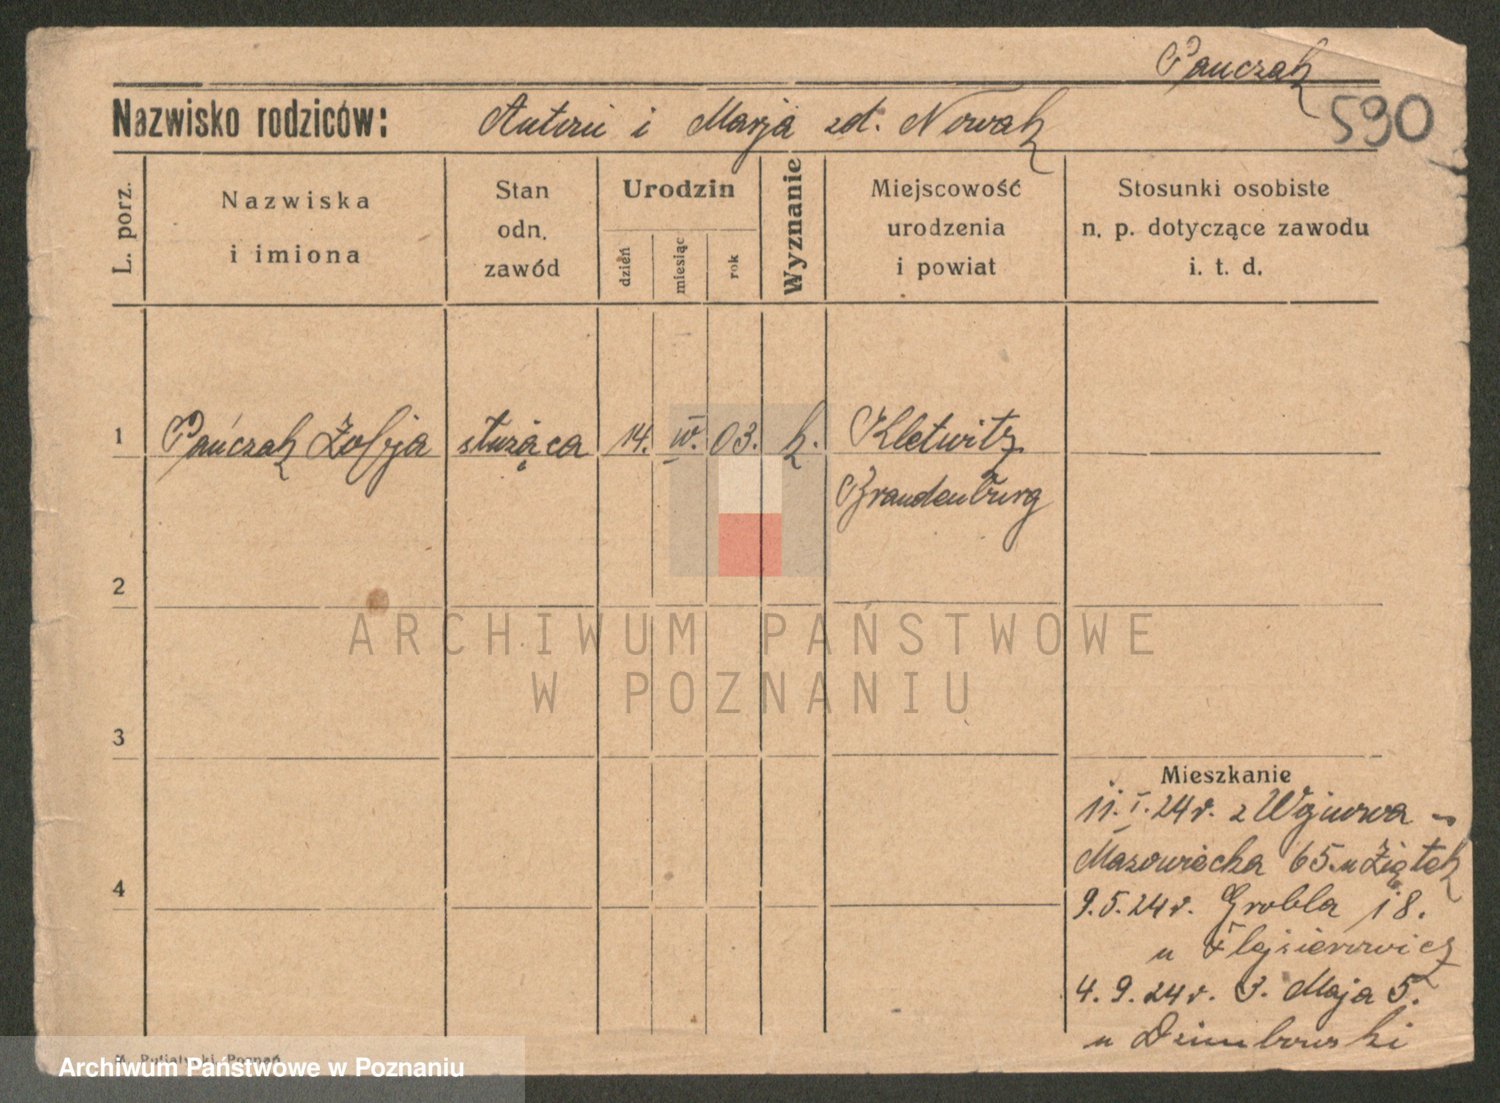 Pańczak
Nazwisko rodziców: Antoni i Marja zd. Nowak
590
L. porz.
Nazwiska
i imiona
Stan
odn.
zawód
Urodzin
dzień
miesiąc
rok
Wyznanie
Miejscowość
urodzenia
i powiat
Stosunki osobiste
n. p. dotyczące zawodu
i. t. d.
1 Pańczak Zofja służąca 14. IV. 03. k. Kletwitz
Brandenburg
2
ARCHIWUM PAŃSTWOWE
W POZNANIU
3
Mieszkanie
11. I. 24 r. z
Mazowiecka 65. u Ziętek
4
9. 5. 24 r. Grobla 18.
u
4. 9. 24 r. 3. Maja 5.
u
Poznań
Archiwum Państwowe w Poznaniu